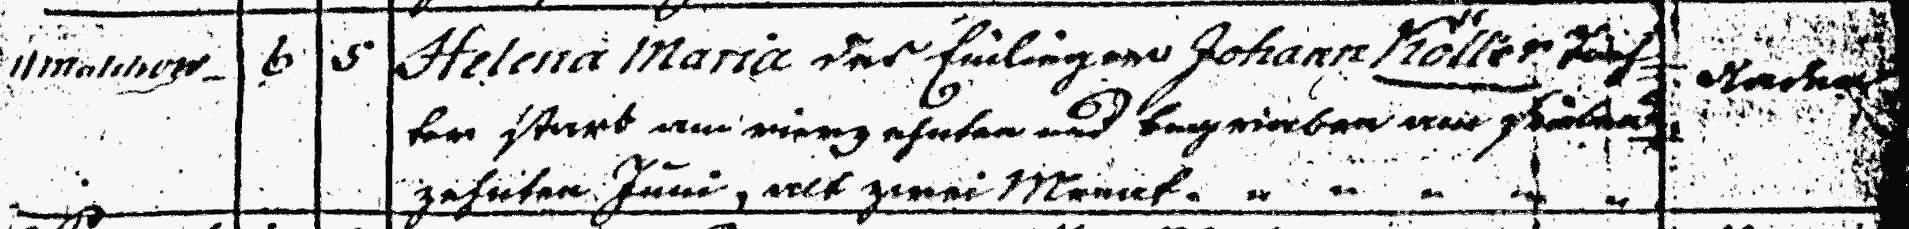 Malchow 6 5 Helena Maria des Einliegers Johann Köller Toch
ter starb am vierzehnten und begraben am sieben
zehnten Juni, alt zwei Monat. " " " " "